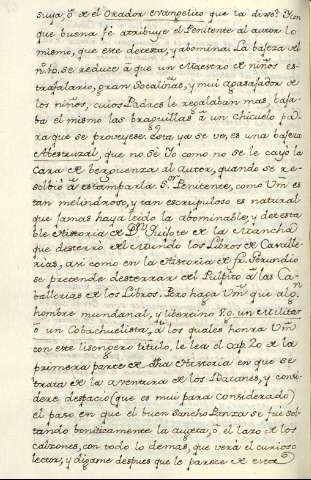 suya, ô de el Orador Evangelico que la dixo? Mon
que buena fé atribuye el Penitente al autor lo
mismo, que este detesta, y abomina. La bajeza del
nº 10. se reduce â que un Maestro de niños es-
trafalario, gran Socaliñas, y mui agasajador de
los niños, cuios Padres le regalaban mas, baja-
ba êl mismo las braguillas â un chicuelo pa-
ra que se proveyese. Esta ya se ve, es una bajeza
Abestruzal, que no sè Yo como no se le cayò la
cara de berguenza al Autor, quando se re-
solbiò â estamparla. Sor Penitente, como Vm es
tan melindroso, y tan escrupuloso es natural
que jamas haya leido la abominable, y detesta
ble Historia de Dn Quijote de la Mancha
que desterrò del Mundo los Libros de Cavalle-
rias, asi como en la Historia de fr. Gerundio
se pretende desterrar del Pulpito â las Ca-
ballerias de los Libros. Pero haga Vm que algn
hombre mundanal, y libertino v.g. un Militar
ô un Cobachuelista, â los quales honra Vm
con este lisongero titulo, le lea el cap. 20 de la
primera parte de dha Historia en que se
trata de la aventura de los Batanes, y consi-
dere despacio (que es mui para considerado)
el paso en que el buen Sancho Panza se fuè sol-
tando boniticamente la aujeta, ô el lazo de los
calzones, con todo lo demas, que verà el curioso
lector, y digame despues que le parece de esta